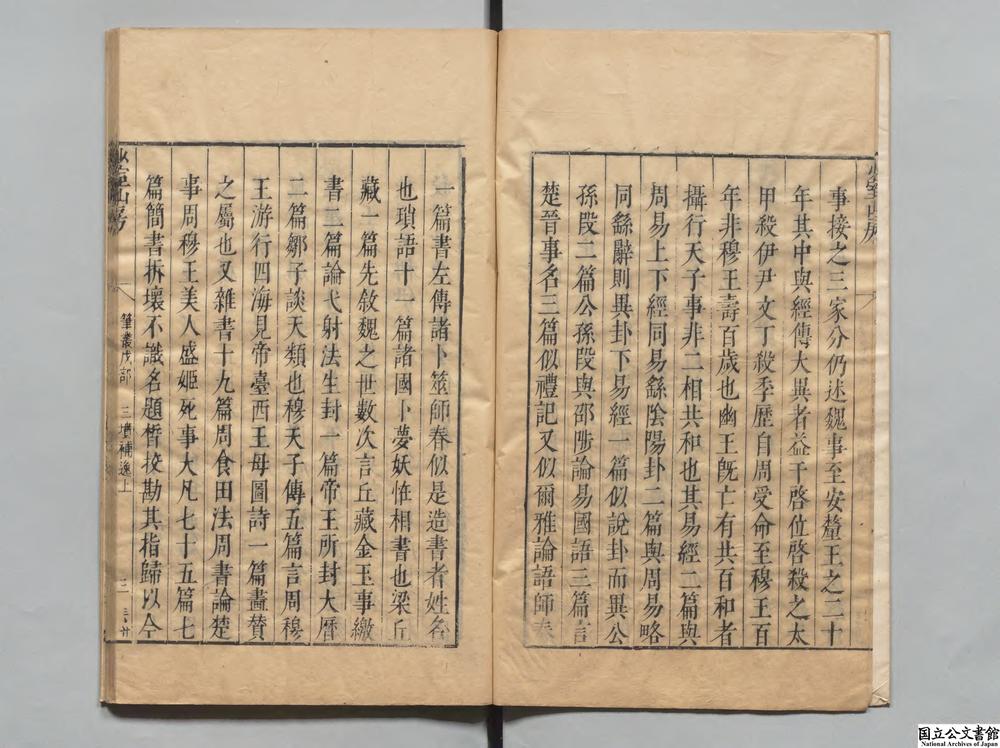 事接之三家分仍述魏事至安釐王之二十
年其中與經傳大異者益干啓位啓殺之太
甲殺伊尹文丁殺季歷自周受命至穆王百
年非穆王壽百歲也幽王旣亡有共百和者
攝行天子事非二相共和也其易經二篇與
周易上下經同易繇陰陽卦二篇與周易略
同繇辭則異卦下易經一篇似說卦而異公
孫段二篇公孫段與邵陟論易國語三篇言
楚晉事名三篇似禮記又似爾雅論語師春
一篇書左傳諸卜筮師春似是造書者姓名
也瑣語十一篇諸國卜夢妖恠相書也梁丘
藏一篇先敘魏之世數次言丘藏金玉事繳
書二篇論弋射法生封一篇帝王所封大曆
二篇鄒子談天類也穆天子傳五篇言周穆
王游行四海見帝臺西王母圖詩一篇畫贊
之屬也又雜書十九篇周食田法周書論楚
事周穆王美人盛姬死事大凡七十五篇七
篇簡書拆壞不識名題晳挍勘其指歸以今
筆叢戊部 三墳補逸上 三
國立公文書館
National Archives of Japan